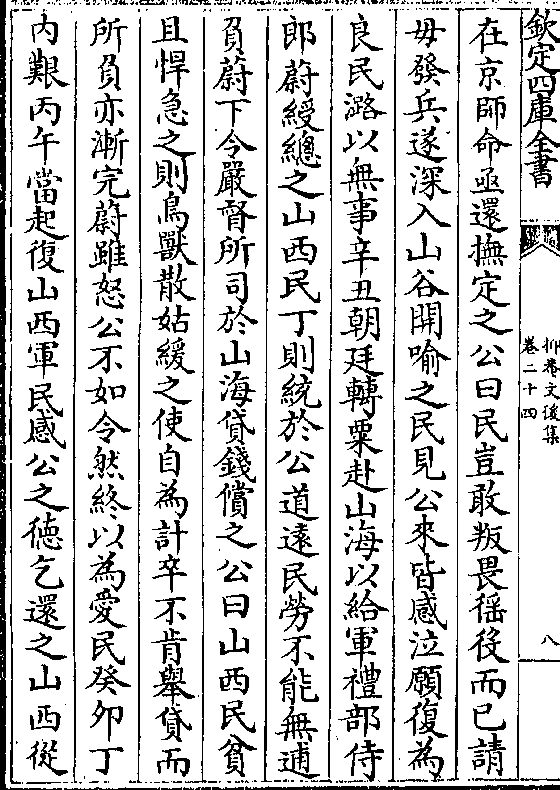 欽定四庫全書
抑菴文後集
卷二十四
八
在京師命亟還撫定之公曰民豈敢叛畏徭役而已請
毋發兵遂深入山谷開喻之民見公來皆感泣願復為
良民潞以無事辛丑朝廷轉粟赴山海以給軍禮部侍
郎蔚綬總之山西民丁則統於公道遠民勞不能無逋
負蔚下令嚴督所司於山海貸錢償之公曰山西民貧
且悍急之則鳥獸散姑緩之使自為計卒不肯舉貸而
所負亦漸完蔚雖怒公不如令然終以為愛民癸卯丁
内艱丙午當起復山西軍民感公之徳乞還之山西從